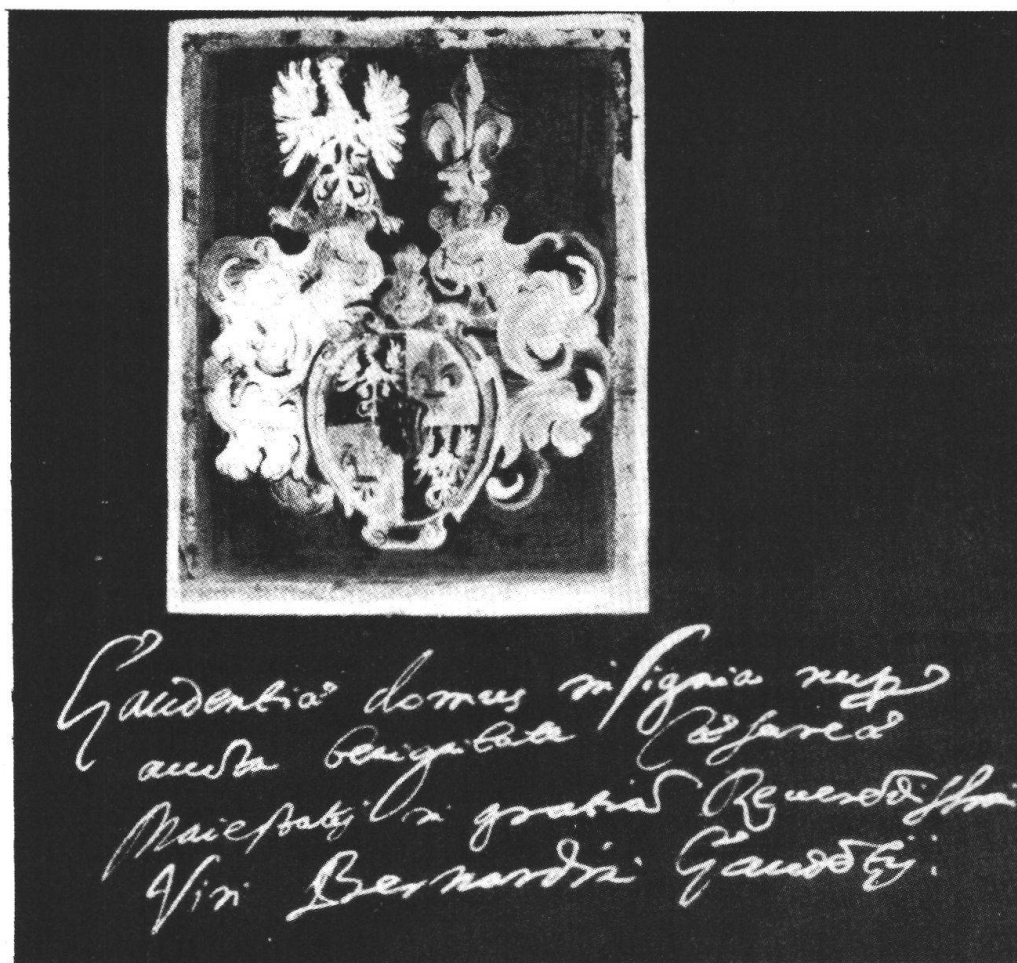 Gaudentiæ domus insignia nup
aucta benignitate Cæsareæ
Maiestatis in gratiā Reuerēdissimi
Viri Bernardini Gaudētij.